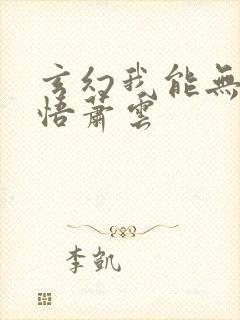 玄幻我能無
悟蕭雲
李凱